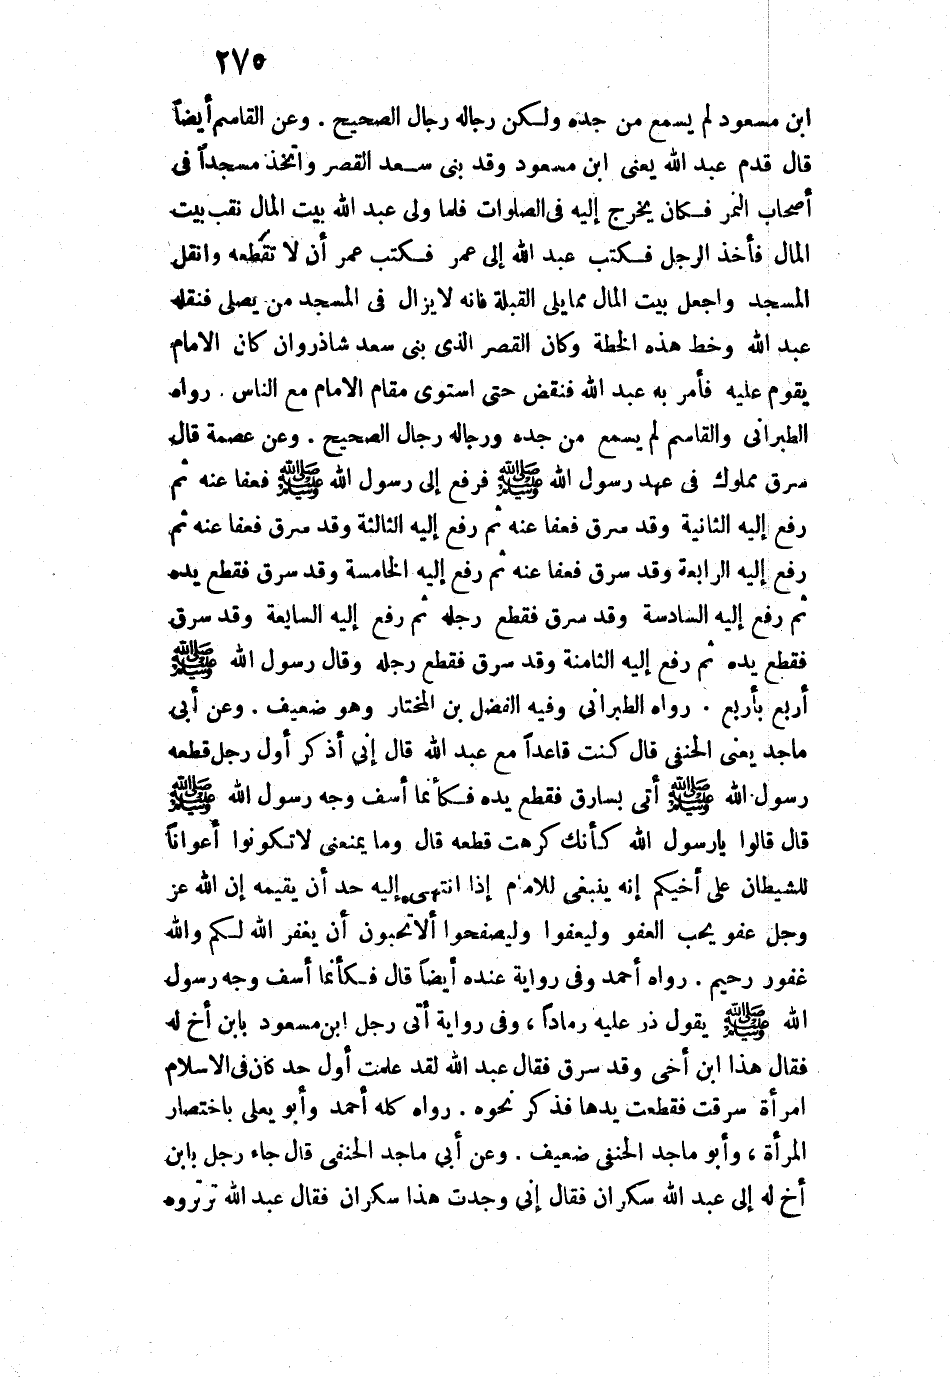 ٢٧٥
ابن مسعود لم يسمع من جده ولكن رجاله رجال الصحيح . وعن القاسم أيضاً
قال قدم عبد الله يعنى ابن مسعود وقد بنى سعد القصر واتخذ مسجداً فى
أصحاب التمر فكان يخرج إليه فى الصلوات فلما ولى عبد الله بيت المال نقب بيت
المال فأخذ الرجل فكتب عبد الله إلى عمر فكتب عمر أن لا تقطعه وانقل
المسجد واجعل بيت المال ممايلى القبلة فانه لايزال فى المسجد من يصلى فنقله
عبد الله وخط هذه الخطة وكان القصر الذى بنى سعد شاذروان كان الامام
يقوم عليه فأمر به عبد الله فنقض حتى استوى مقام الامام مع الناس . رواه
الطبرانى والقاسم لم يسمع من جده ورجاله رجال الصحيح . وعن عصمة قال
سرق مملوك فى عهد رسول الله ﷺ فرفع إلى رسول الله ﷺ فعفا عنه ثم
رفع إليه الثانية وقد سرق فعفا عنه ثم رفع إليه الثالثة وقد سرق فعفا عنه ثم
رفع إليه الرابعة وقد سرق فعفا عنه ثم رفع إليه الخامسة وقد سرق فقطع يده
ثم رفع إليه السادسة وقد سرق فقطع رجله ثم رفع إليه السابعة وقد سرق
فقطع يده ثم رفع إليه الثامنة وقد سرق فقطع رجله وقال رسول الله ﷺ
أربع بأربع . رواه الطبراني وفيه الفضل بن المختار وهو ضعيف . وعن أبى
ماجد يعنى الحنفى قال كنت قاعداً مع عبد الله قال إني أذكر أول رجل قطعه
رسول الله ﷺ أتى بسارق فقطع يده فكأنما أسف وجه رسول الله ﷺ
قال قالوا يارسول الله كأنك كرهت قطعه قال وما يمنعنى لاتكونوا أعواناً
للشيطان على أخيكم إنه ينبغى للامام إذا انتهى إليه حد أن يقيمه إن الله عز
وجل عفو يحب العفو وليعفوا وليصفحوا ألاتحبون أن يغفر الله لكم والله
غفور رحيم . رواه أحمد وفى رواية عنده أيضاً قال فكأنما أسف وجه رسول
الله ﷺ يقول ذر عليه رماداً ، وفى رواية أتى رجل ابن مسعود بابن أخ له
فقال هذا ابن أخى وقد سرق فقال عبد الله لقد علمت أول حد كان فى الاسلام
امرأة سرقت فقطعت يدها فذكر نحوه . رواه كله أحمد وأبو يعلى باختصار
المرأة ، وأبو ماجد الحنفى ضعيف . وعن أبي ماجد الحنفى قال جاء رجل بابن
أخ له إلى عبد الله سكران فقال إني وجدت هذا سكران فقال عبد الله ترتروه